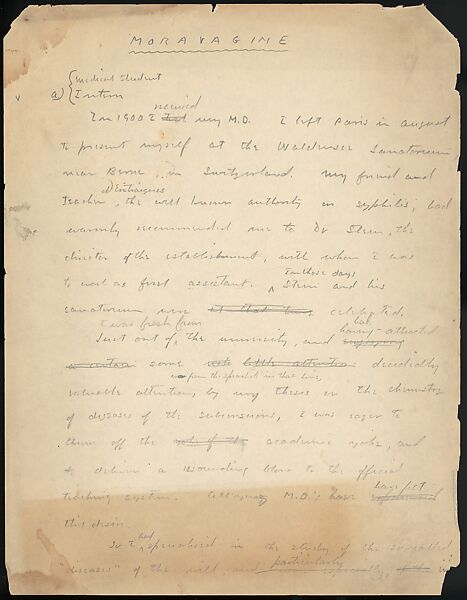 MORAVAGINE
medical student
a) Intern
received
In 1900 I had my M.D. I left Paris in august
to present myself at the Waldensee Sanatorium
near Berne, in Switzerland. My friend and
d'Entraigues
teacher, the well known authority on syphilis, had
warmly recommended me to Dr Stein, the
director of the establishment, with whom I was
In those days
to work as first assistant. Stein and his
sanatorium were celebrated.
I was fresh from
Just out of the university, and having attracted
some little attention decidedly
from the specialists in that line,
valuable attention, by my thesis on the chemistry
of diseases of the subconscious, I was eager to
throw off the yoke of the academic yoke, and
to deliver a resounding blow to the official
teaching system. All young M.D.'s have
have felt
this desire.
had
So I specialized in the study of the so-called
particularly
"diseases" of the will, and